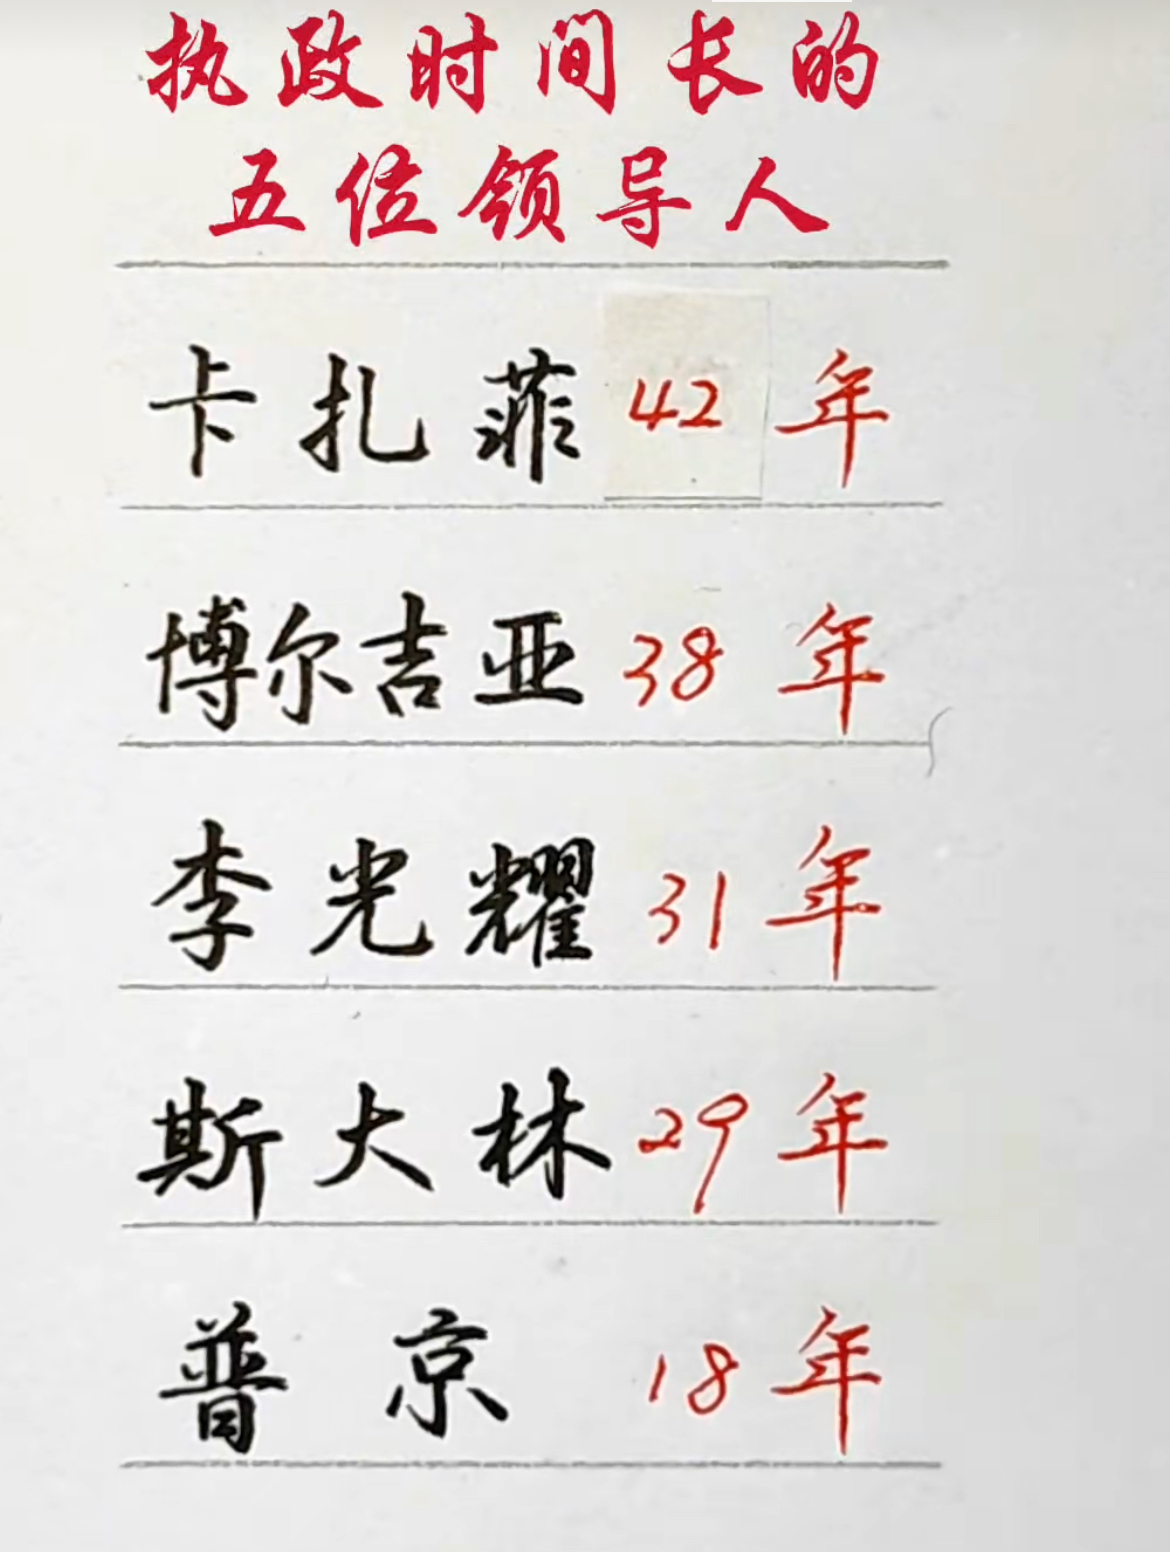 执政时间长的
五位领导人
卡扎菲 42 年
博尔吉亚 38 年
李光耀 31 年
斯大林 29 年
普京 18 年